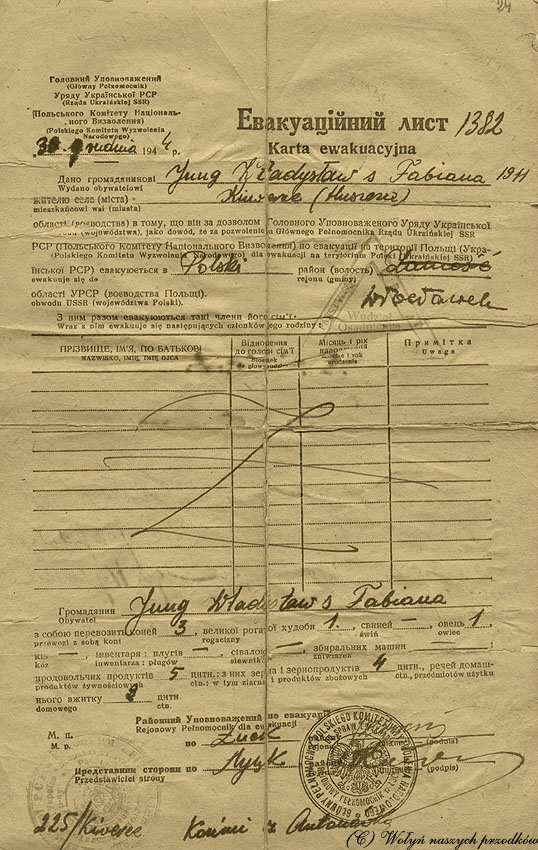 24
Головний Уповноважений
(Główny Pełnomocnik)
Уряду Української РСР
(Rządu Ukraińskiej SSR)
Польського Комітету Національ-
ного Визволення)
(Polskiego Komitetu Wyzwolenia
Narodowego)
30 grudnia 1944 р.
Евакуаційний лист 1382
Karta ewakuacyjna
Дано громадянинові Jung Władysław s Fabiana 1911
Wydano obywatelowi
жителю села (міста) Kiwerce
mieszkańcowi wsi (miasta)
області (воєводства) в тому, що він за дозволом Головного Уповноваженого Уряду Української
(województwa), jako dowód, że za pozwoleniem Głównego Pełnomocnika Rządu Ukraińskiej SSR
РСР (Польського Комітету Національного Визволення) по евакуації на території Польщі (Укра-
(Polskiego Komitetu Wyzwolenia Narodowego) dla ewakuacji na terytorium Polski (Ukraińskiej SSR)
їнської РСР) евакуюється в Polski район (волость) Zamość
ewakuuje się do rejonu (gminy)
області УРСР (воєводства Польщі). Włocławek
obwodu USSR (województwa Polski).
З ним разом евакуюються такі члени його сім'ї:
Wraz z nim ewakuuje się następujących członków jego rodziny:
ПРІЗВИЩЕ, ІМ'Я, ПО БАТЬКОВІ Відношення до голови сім'ї Місяць і рік народження Примітка
NAZWISKO, IMIĘ, IMIĘ OJCA Stosunek do głowy rodziny urodzenia Uwaga
Громадянин Jung Władysław s Fabiana
Obywatel
з собою перевозить: коней 3, великої рогатої худоби 1. свиней — овець 1
przewozi z sobą koni rogacizny świń owiec
кіз — інвентаря: плугів — сівалок — збиральних машин —
kóz inwentarza: pługów siewników żniwiarek
продовольчих продуктів 5 цнтн.: з них зерна і зернопродуктів 4 цнтн., речей домаш-
produktów żywnościowych ctn.: w tym ziarna i produktów zbożowych ctn., przedmiotów użytku
нього вжитку цнтн.
domowego ctn.
Районний Уповноважений по евакуації
Rejonowy Pełnomocnik dla ewakuacji
М. п. по Łuck (підпис)
M. p. po (podpis)
Представник сторони по Луцьк (підпис)
Przedstawiciel strony (podpis)
225/Kiwerce
(C) Wołyń naszych przodków